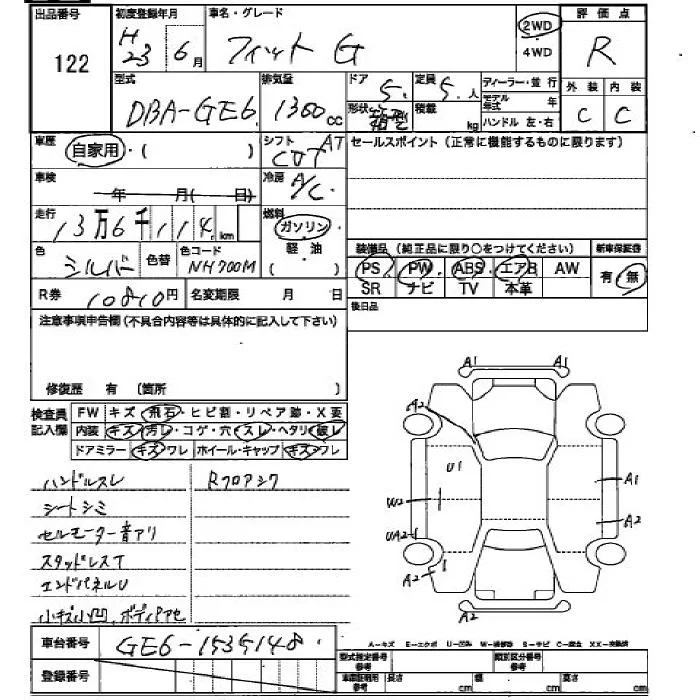 出品番号 初度登録年月 車名・グレード 評価点
122 H23 6月 フィット G 2WD 4WD R
型式 排気量 ドア 定員 ディーラー・並行 外装 内装
DBA-GE6 1300cc 5. 5.人 モデル年式 年 C C
形状 箱型 積載 kg ハンドル 左・右
車歴 自家用・( ) シフト AT CVT セールスポイント (正常に機能するものに限ります)
車検 年 月( 日) 冷房 A/C
走行 13万6千114km 燃料 ガソリン・軽油 ( )
色 シルバー 色替 色コード NH700M
装備品 (純正品に限り○をつけてください) 新車保証書
PS PW ABS エアB AW 有・無
SR ナビ TV 本革
R券 10810円 名変期限 月 日 後日品
注意事項申告欄 (不具合内容等は具体的に記入して下さい)
修復歴 有 [箇所 ]
検査員記入欄 FW キズ・飛石・ヒビ割・リペア跡・X要
内装 キズ・汚レ・コゲ・穴・スレ・ヘタリ・破レ
ドアミラー キズ・ワレ ホイール・キャップ キズ・ワレ
ハンドルスレ Rフロアシワ
シートシミ
セルモーター音アリ
スタッドレスT
エンドパネルU
小キズ小凹、ボディアセ
A1 A1
A2
U1
A1
W2
A2
UA2
A2
A2
車台番号 GE6-1535148
登録番号
A-キズ E-エクボ U-凹ミ W-補修跡 S-サビ C-腐食 XX-交換済
型式指定番号 参考 類別区分番号 参考
車庫証明用 参考 長さ cm 幅 cm 高さ cm